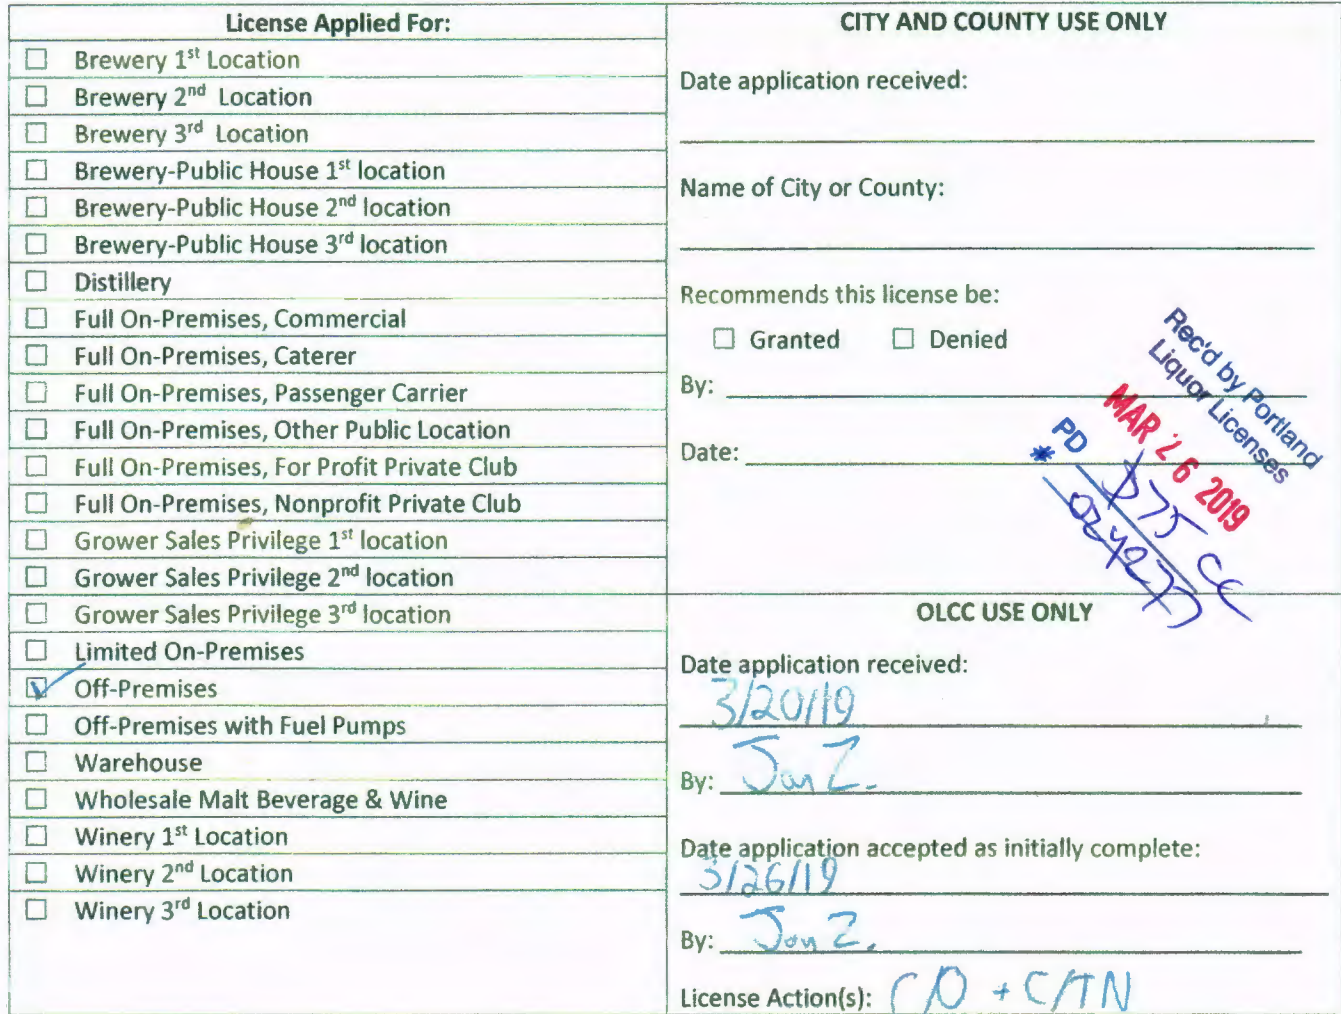 License Applied For:
☐ Brewery 1st Location
☐ Brewery 2nd Location
☐ Brewery 3rd Location
☐ Brewery-Public House 1st location
☐ Brewery-Public House 2nd location
☐ Brewery-Public House 3rd location
☐ Distillery
☐ Full On-Premises, Commercial
☐ Full On-Premises, Caterer
☐ Full On-Premises, Passenger Carrier
☐ Full On-Premises, Other Public Location
☐ Full On-Premises, For Profit Private Club
☐ Full On-Premises, Nonprofit Private Club
☐ Grower Sales Privilege 1st location
☐ Grower Sales Privilege 2nd location
☐ Grower Sales Privilege 3rd location
☐ Limited On-Premises
☑ Off-Premises
☐ Off-Premises with Fuel Pumps
☐ Warehouse
☐ Wholesale Malt Beverage & Wine
☐ Winery 1st Location
☐ Winery 2nd Location
☐ Winery 3rd Location
CITY AND COUNTY USE ONLY
Date application received:
Name of City or County:
Recommends this license be:
☐ Granted ☐ Denied
By:
Date:
Rec'd by Portland
Liquor Licenses
MAR 26 2019
PD $75 CC
*
OLCC USE ONLY
Date application received:
3/20/19
By: Jon Z.
Date application accepted as initially complete:
3/26/19
By: Jon Z.
License Action(s): C/O + C/TN